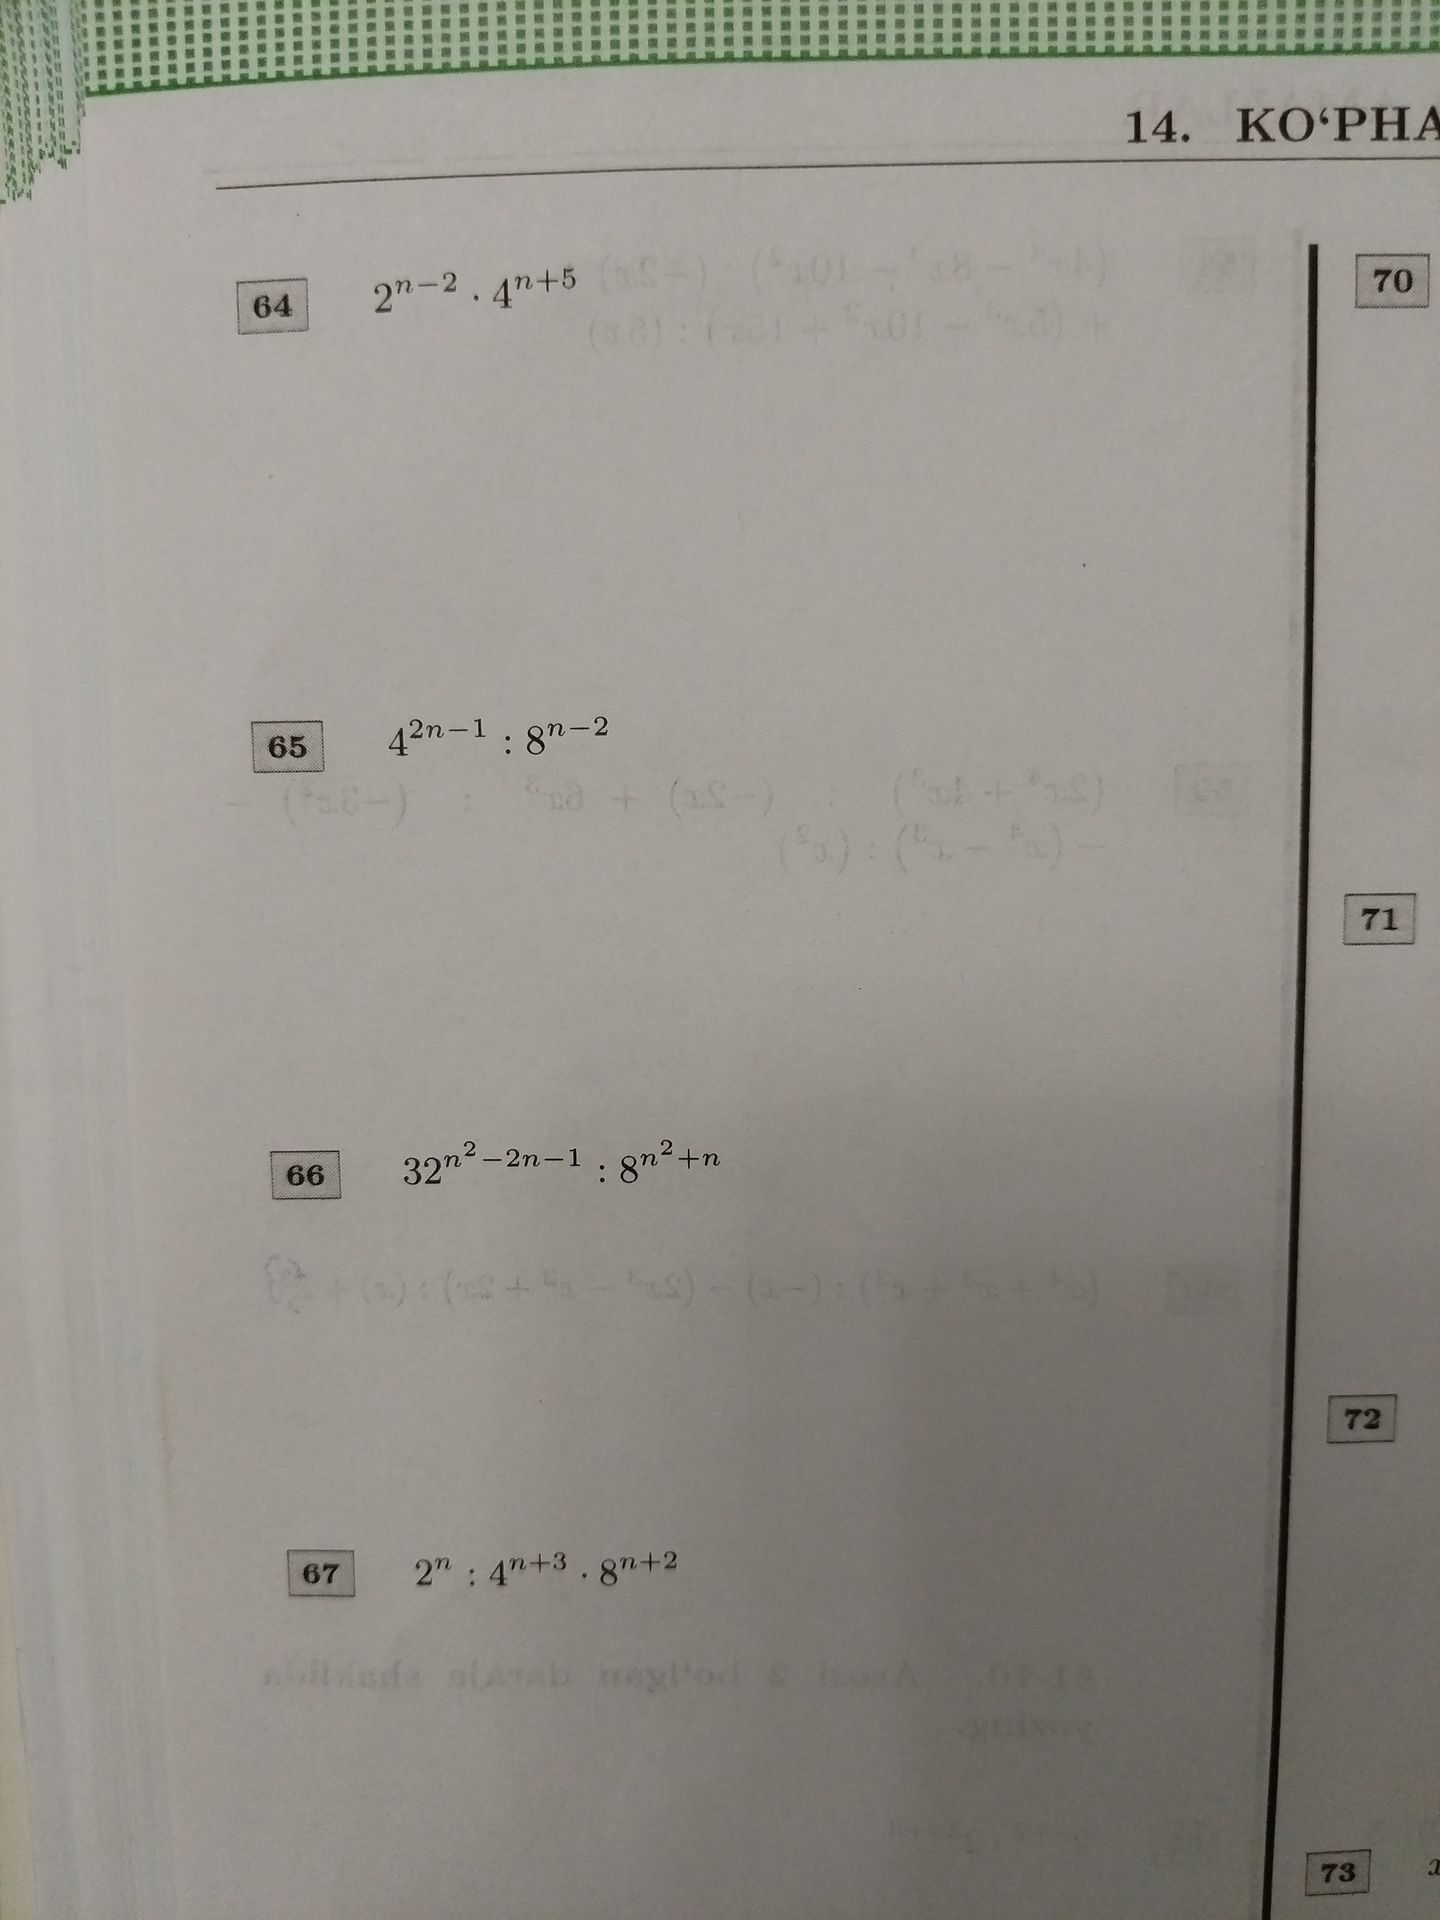 14. KO‘PHA
64 2^{n-2} · 4^{n+5}
65 4^{2n-1} : 8^{n-2}
66 32^{n^2-2n-1} : 8^{n^2+n}
67 2^n : 4^{n+3} · 8^{n+2}
70
71
72
73 x